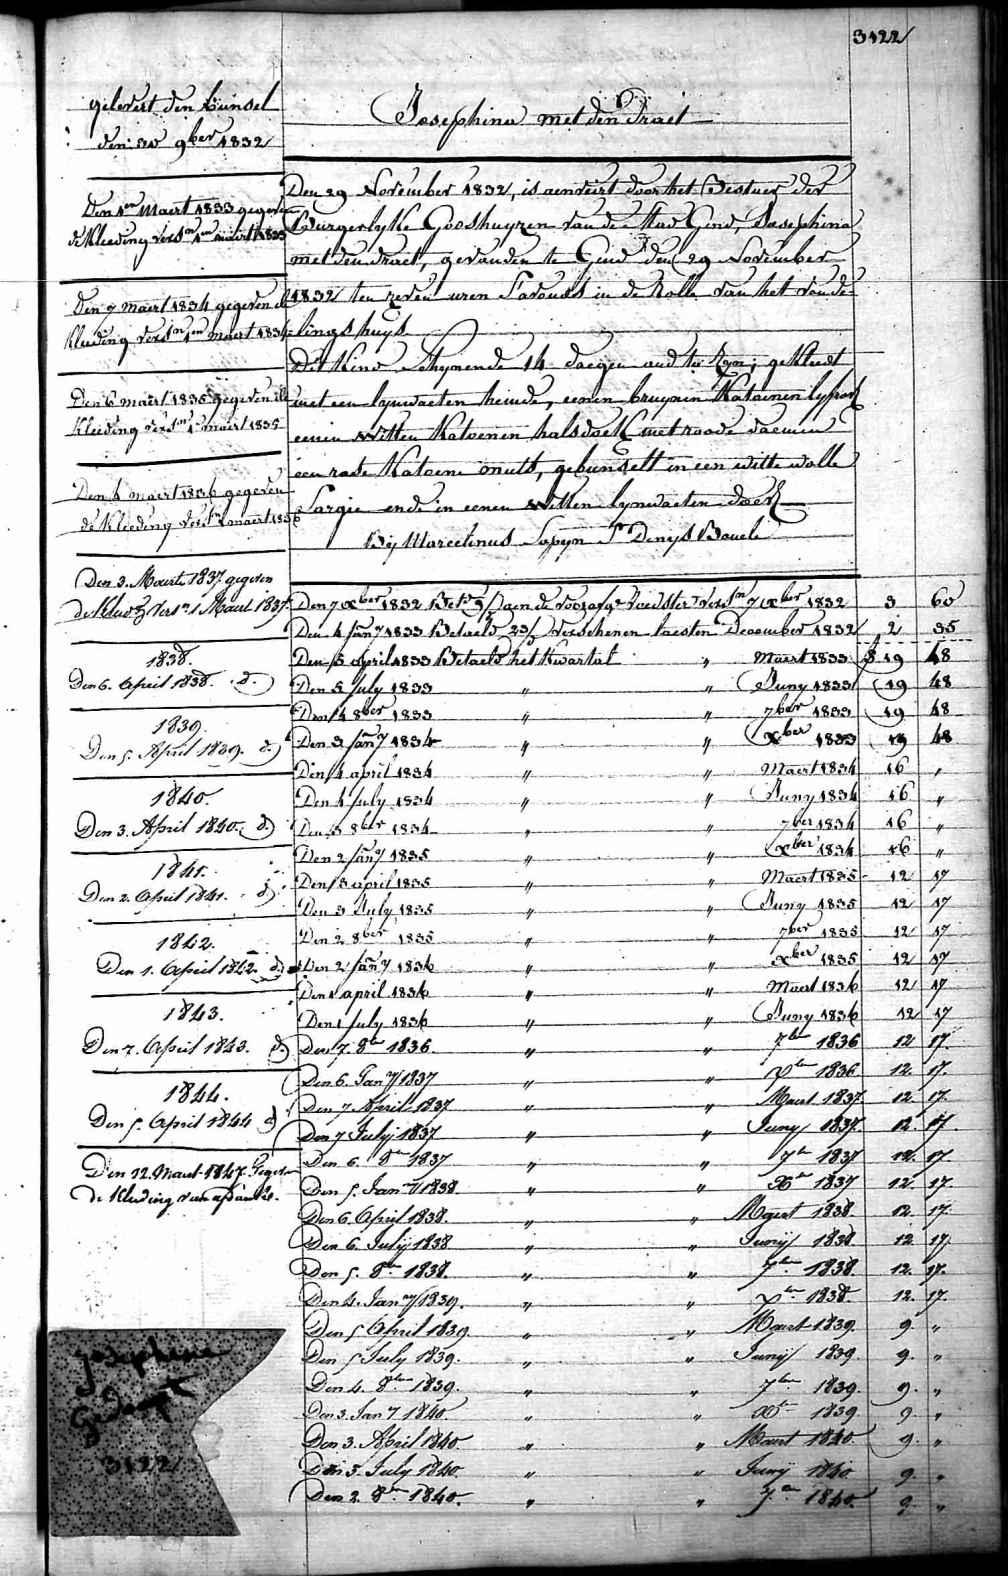 3122
gelevert den bunsel
den 30 9ber 1832
Josephina met den Draet
Den 1en Maert 1833 gegeven
de Kleeding versn 1en maert 1833
Den 7 Maert 1834 gegeven de
Kleeding versn 1en maert 1834
Den 6 maert 1835 gegeven de
Kleeding versn 1e maert 1835
Den 4 maert 1836 gegeven
de Kleeding versn 1 maert 1836
Den 3. Maerte 1837 gegeven
de Kleedg versn. 1 Maert 1837
1838.
Den 6. April 1838. d.
1839.
Den 5. April 1839. d)
1840.
Den 3. April 1840. d)
1841.
Den 2. April 1841. d)
1842.
Den 1. April 1842. d)
1843.
Den 7. April 1843. d)
1844.
Den 5. April 1844 d)
Den 12. Maert 1847. Gegeven
de Kleeding van
Josephine
Gedraet
3122
Den 29 November 1832, is aenveirt door het Bestuer der
Burgerlyke Godshuyzen van de Stad Gend, Josephina
met den draet, gevonden te Gend den 29 November
1832 ten zeven uren s'avonds in de Rolle van het vonde-
lingshuys
Dit Kind schynende 14 daegen oud te zyn; gekleedt
met een lynwaeten hemde, eenen bruynen Katoenen lyfrok
eenen witten Katoenen halsdoek met roode
een roste Katoene muts, gebunselt in een witte wolle
Sargie ende in eenen witten lynwaeten doek
By Marcelinus Papyn St Denys Bouele
Den 7 Xber 1832 aen de voorsz voedster versn 7 Xber 1832 3 60
Den 4 Jany 1833 Betaeld verschenen laesten December 1832 2 35
Den 5 april 1833 Betaeld het Kwartal " Maert 1833 19 48
Den 5 July 1833 " " Juny 1833 19 48
Den 4 8ber 1833 " " 7ber 1833 19 48
Den 3 Jany 1834 " " Xber 1833 19 48
Den 4 april 1834 " " Maert 1834 16 "
Den 4 July 1834 " " Juny 1834 16 "
Den 3 8ber 1834 " " 7ber 1834 16 "
Den 2 Jany 1835 " " Xber 1834 16 "
Den 3 april 1835 " " Maert 1835 12 17
Den 3 July 1835 " " Juny 1835 12 17
Den 2 8ber 1835 " " 7ber 1835 12 17
Den 2 Jany 1836 " " Xber 1835 12 17
Den 1 april 1836 " " Maert 1836 12 17
Den 1 July 1836 " " Juny 1836 12 17
Den 7. 8ber 1836 " " 7ber 1836 12 17.
Den 6. Jany 1837 " " Xber 1836 12. 17.
Den 7. April 1837 " " Maert 1837 12. 17.
Den 7 July 1837 " " Juny 1837. 12. 17.
Den 6. 8ber 1837 " " 7br 1837 12. 17
Den 5. Jany 1838 " " Xbr 1837 12. 17.
Den 6. April 1838. " " Maert 1838 12. 17.
Den 6. July 1838 " " Junij 1838 12 17.
Den 5. 8br 1838. " " 7ber 1838 12. 17.
Den 4. Jany 1839. " " Xber 1838 12. 17.
Den 5 April 1839 " " Maert 1839. 9. "
Den 5 July 1839. " " Junij 1839. 9. "
Den 4. 8ber 1839. " " 7ber 1839. 9. "
Den 3. Jany 1840. " " Xbr 1839 9. "
Den 3. April 1840. " " Maert 1840 9. "
Den 3. July 1840. " " Junij 1840 9. "
Den 2. 8br 1840. " " 7br 1840. 9. "